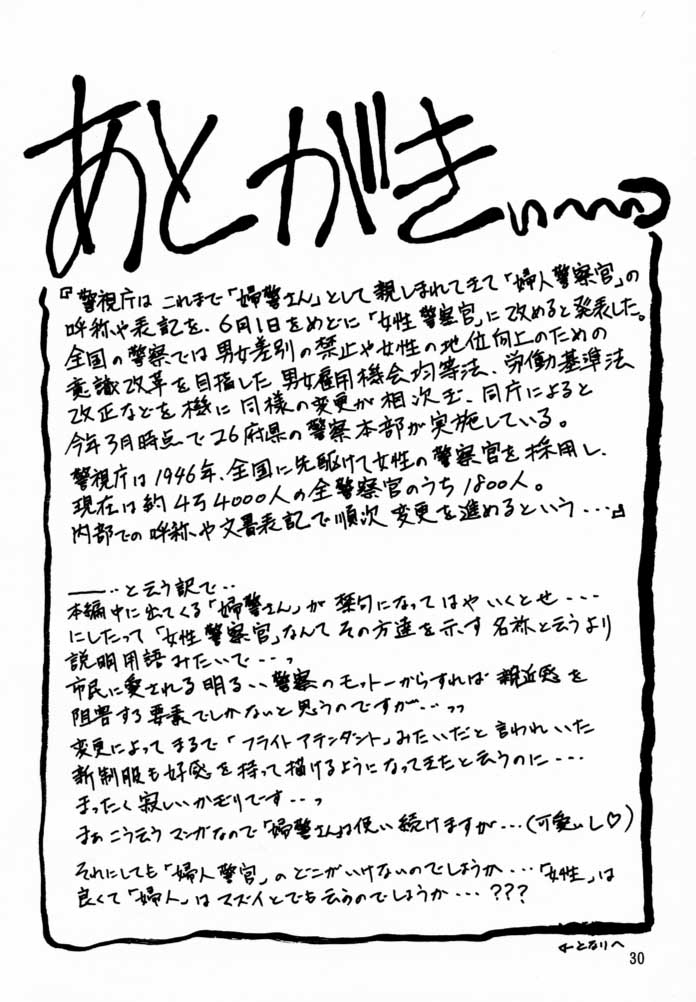 あとがきぃ〜〜ぃっ
『警視庁は これまで「婦警さん」として親しまれてきて「婦人警察官」の
呼称や表記を、6月1日をめどに「女性警察官」に改めると発表した。
全国の警察では男女差別の禁止や女性の地位向上のための
意識改革を目指した男女雇用機会均等法、労働基準法
改正などを機に同様の変更が相次ぎ、同庁によると
今年3月時点で26府県の警察本部が実施している。
警視庁は1946年、全国に先駆けて女性の警察官を採用し、
現在は約4万4000人の全警察官のうち1800人。
内部での呼称や文書表記で順次変更を進めるという・・・』
――‥と云う訳で‥
本編中に出てくる「婦警さん」が禁句になってはやいくとせ・・・
にしたって「女性警察官」なんてその方達を示す名称と云うより
説明用語みたいで・・・っ
市民に愛される明るい警察のモットーからすれば親近感を
阻害する要素でしかないと思うのですが・・・っっ
変更によってまるで「フライトアテンダント」みたいだと言われいた
新制服も好感を持って描けるようになってきたと云うのに・・・
まったく寂しいかぎりです・・・っ
まぁこう云うマンガなので「婦警さん」は使い続けますが・・・(可愛いし♡)
それにしても「婦人警官」のどこがいけないのでしょうか・・・「女性」は
良くて「婦人」はマズイとでも云うのでしょうか・・・???
←となりへ
30